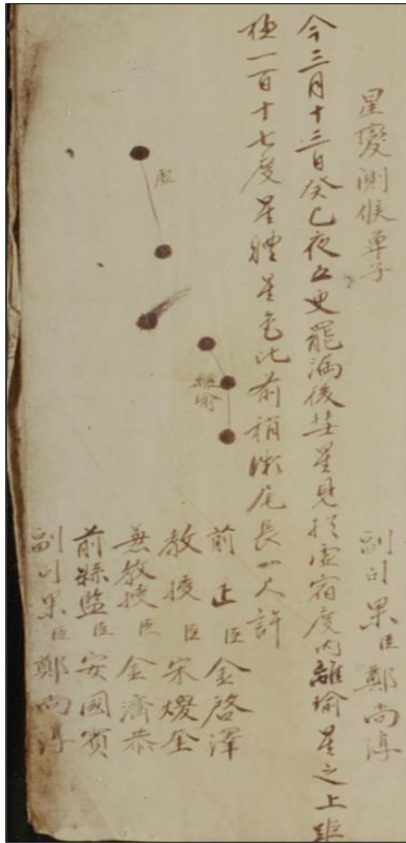 星變測候單子
副司果臣鄭尚淳
今三月十三日癸巳夜五更罷漏後彗星見於虛宿度內離瑜星之上距
極一百十七度星體星色比前稍微尾長一尺許
虛
離瑜
前正臣金啓澤
教授臣宋
兼教授臣金濟恭
前縣監臣安國賓
副司果臣鄭尚淳